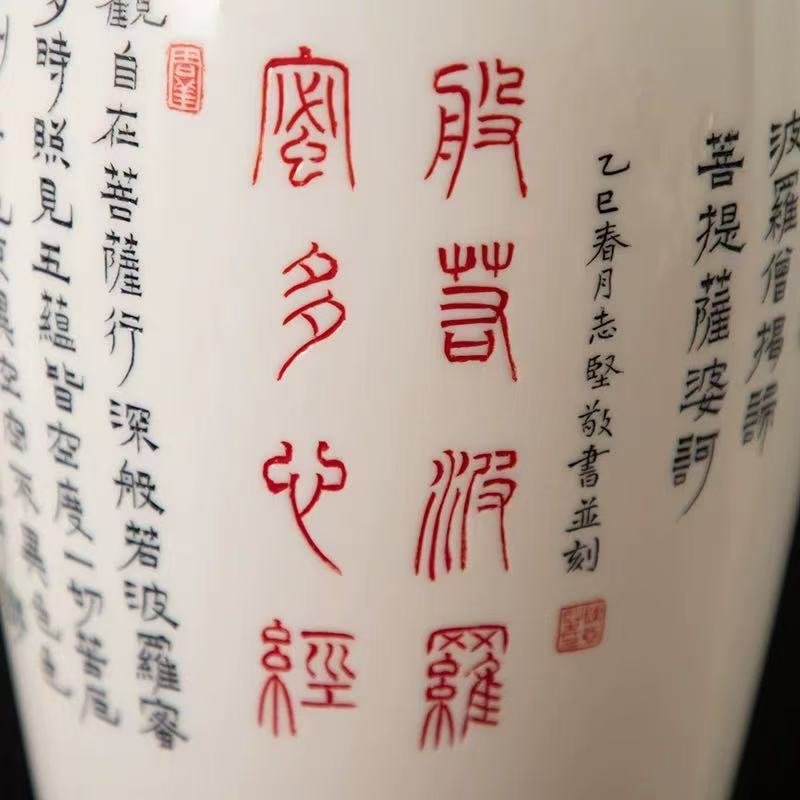 波羅僧揭諦
菩提薩婆訶
乙巳春月志堅敬書並刻
般若波羅
蜜多心經
觀自在菩薩行深般若波羅蜜
多時照見五蘊皆空度一切苦厄
異空空不異色色